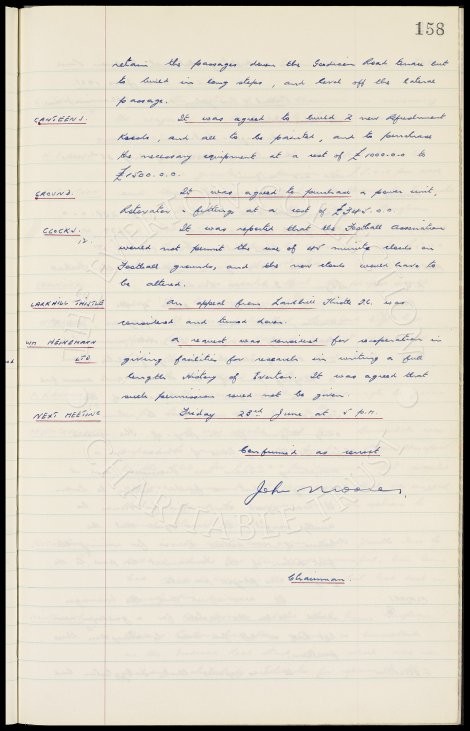 158
retain the passages down the Goodison Road terrace but
to build in long steps, and level off the lateral
passage.
CANTEENS. It was agreed to build 2 new Refreshment
Kiosks, and all to be painted, and to purchase
the necessary equipment at a cost of £1000.0.0 to
£1500.0.0.
GROUND. It was agreed to purchase a power unit,
Rotovator & fittings at a cost of £345.0.0.
CLOCKS. It was reported that the Football Association
would not permit the use of 45 minute clocks on
Football grounds, and the new clocks would have to
be altered.
LARKHILL THISTLE An appeal from Larkhill Thistle F.C. was
considered and turned down.
WM HEINEMANN A request was considered for co-operation in
LTD giving facilities for research in writing a full
length History of Everton. It was agreed that
such permission could not be given.
NEXT MEETING Friday 23rd June at 5 p.m.
Confirmed as correct
John Moores.
Chairman.
EVERTON
CHARITABLE TRUST